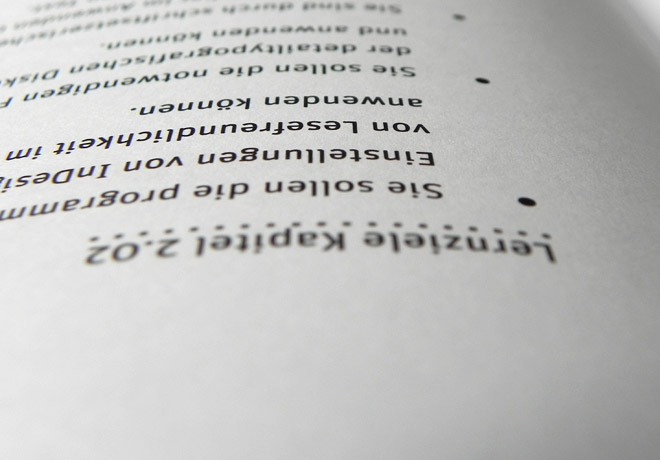 Lernziele Kapitel 2.02
Sie sollen die programm
Einstellungen von InDesi
von Lesefreundlichkeit im
anwenden können.
Sie sollen die notwendigen F
der detailtypografischen Disk
und anwenden können.
Sie sind durch